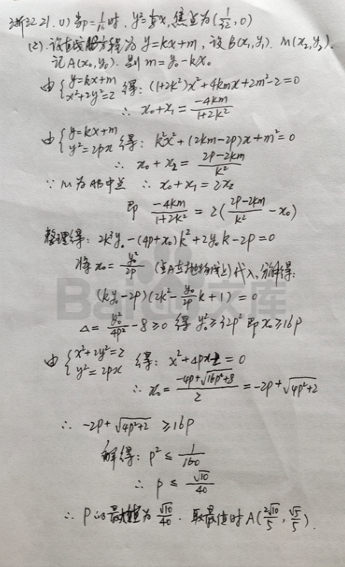 浙江21. (1) 当p=1/16时, y²=1/8x, 焦点为(1/32, 0)
(2) 设直线方程为 y=kx+m, 设B(x₁,y₁). M(x₂,y₂).
记A(x₀,y₀). 则 m=y₀-kx₀
由{y=kx+m x²+2y²=2 得: (1+2k²)x²+4kmx+2m²-2=0
∴ x₀+x₁=-4km/1+2k²
由{y=kx+m y²=2px 得: k²x²+(2km-2p)x+m²=0
∴ x₀+x₂=2p-2km/k²
∵ M为AB中点 ∴ x₀+x₁=2x₂
即 -4km/1+2k²=2(2p-2km/k²-x₀)
整理得: 2k³y₀-(4p+x₀)k²+2y₀k-2p=0
将x₀=y₀²/2p (点A在抛物线上)代入, 分解得:
(ky₀-2p)(2k²-y₀/2p k+1)=0
Δ=y₀²/4p²-8≥0 得 y₀²≥32p² 即x₀≥16p
由{x²+2y²=2 y²=2px 得: x²+4px-2=0
∴ x₀=-4p+√16p²+8/2=-2p+√4p²+2
∴ -2p+√4p²+2≥16p
解得: p²≤1/160
∴ p≤√10/40
∴ p的最大值为√10/40. 取最值时A(2√10/5, √5/5).